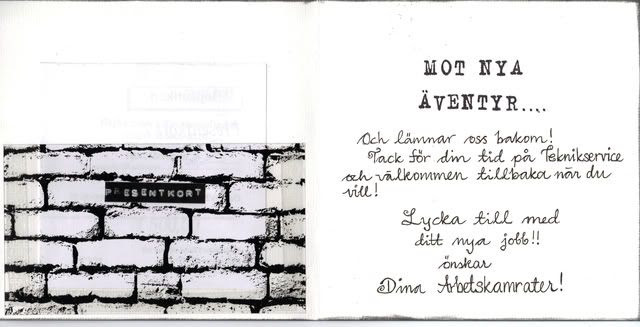 PRESENTKORT
MOT NYA
ÄVENTYR....
Och lämnar oss bakom!
Tack för din tid på Teknikservice
och välkommen tillbaka när du
vill!
Lycka till med
ditt nya jobb!!
önskar
Dina Arbetskamrater!